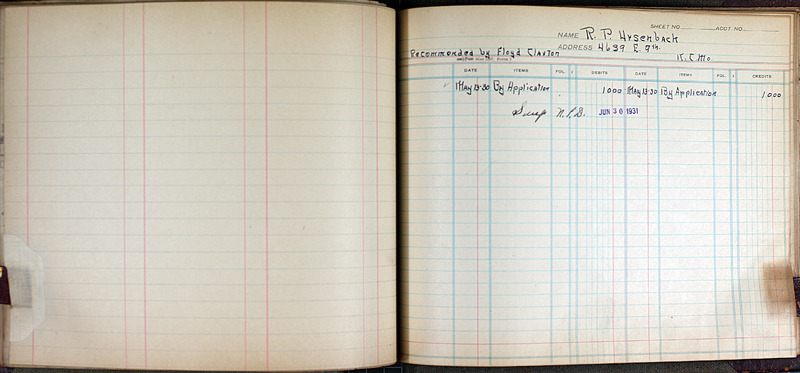 SHEET NO. ACCT. NO.
NAME R. P. Hysenback
ADDRESS 4639 E. 9th.
Recommended by Floyd Claxton K. C. Mo.
DATE ITEMS FOL. DEBITS DATE ITEMS FOL. CREDITS
May 13-30 By Application 10 00 May 13-30 By Application 10 00
Susp N.P.D. JUN 30 1931